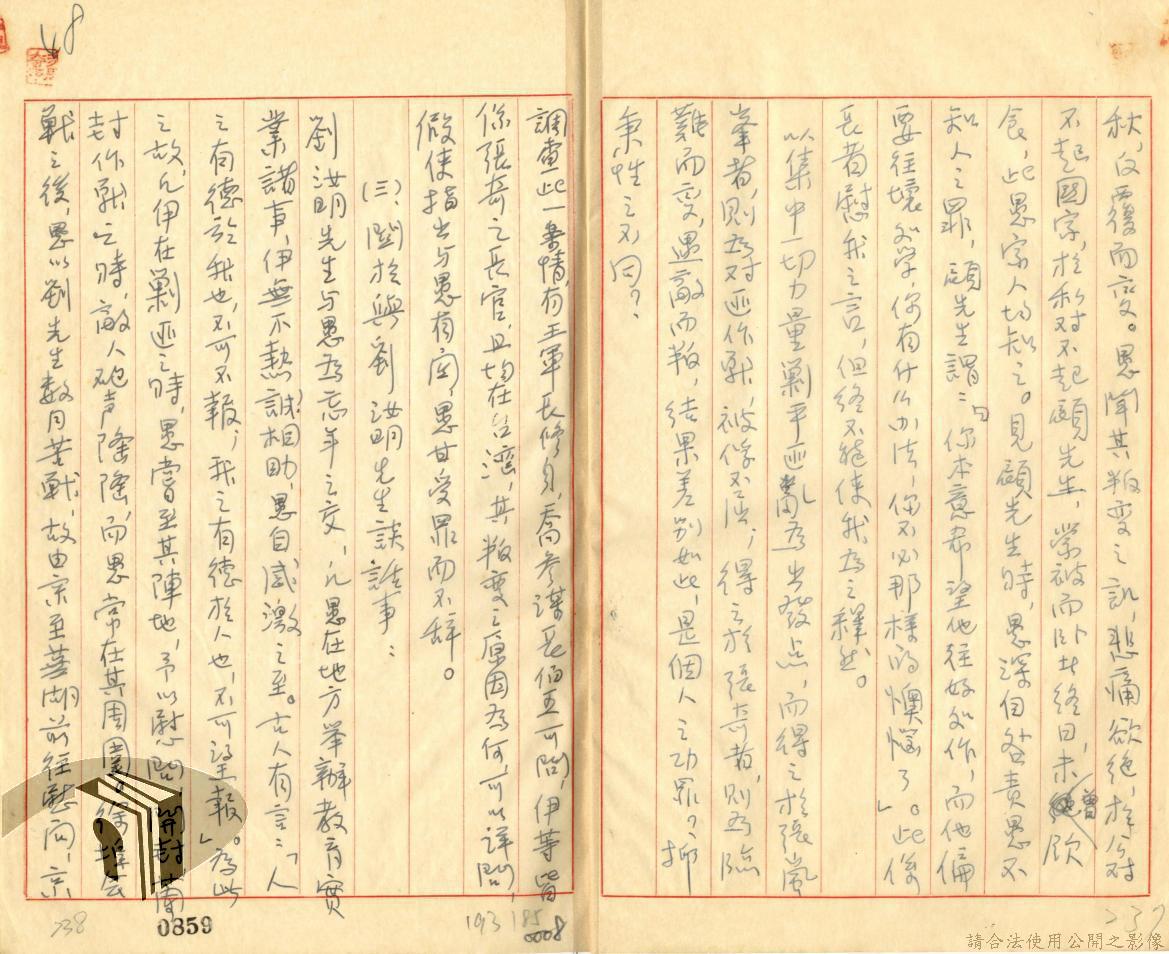 秋,反覆而变。愚聞其叛变之訊,悲痛欲绝,於公对
不起國家,於私对不起顧先生,蒙被而卧者终日,未曾飲
食,此愚家人均知之。見顧先生時,愚深自咎責愚不
知人之罪,顧先生謂:「你本意希望他往好处作,而他偏
要往壞处学,你有什么办法,你不必那樣的懊惱了」。此係
長者慰我之言,但终不能使我为之釋然。
以集中一切力量剿平匪亂为出發点,而得之於張嵐
峯者,則为对匪作戰,被俘不屈;得之於張奇者,則为臨
難而变,遇敵而叛,结果差别如此,是個人之功罪?抑
秉性之不同?
調查此一案情,有王軍長修身,喬參謀長伯玉可問,伊等皆
係張奇之長官,且均在台灣,其叛变之原因为何,可以详問,
假使指出与愚有関,愚甘受罪而不辞。
(三)、関於與劉汝明先生談話事:
劉汝明先生与愚为忘年之交,凡愚在地方举辦教育實
業諸事,伊無不熱誠相助,愚自感激之至。古人有言:「人
之有德於我也,不可不報;我之有德於人也,不可望報」。为此
之故,凡伊在剿匪之時,愚嘗至其陣地,予以慰問,開封蘭
封作戰之時,敵人砲声隆隆,而愚常在其周圍。徐埠会
戰之後,愚以劉先生数月苦戰,故由京至蕪湖前往慰问,京
68
738
0859
193 185
0008
237
請合法使用公開之影像